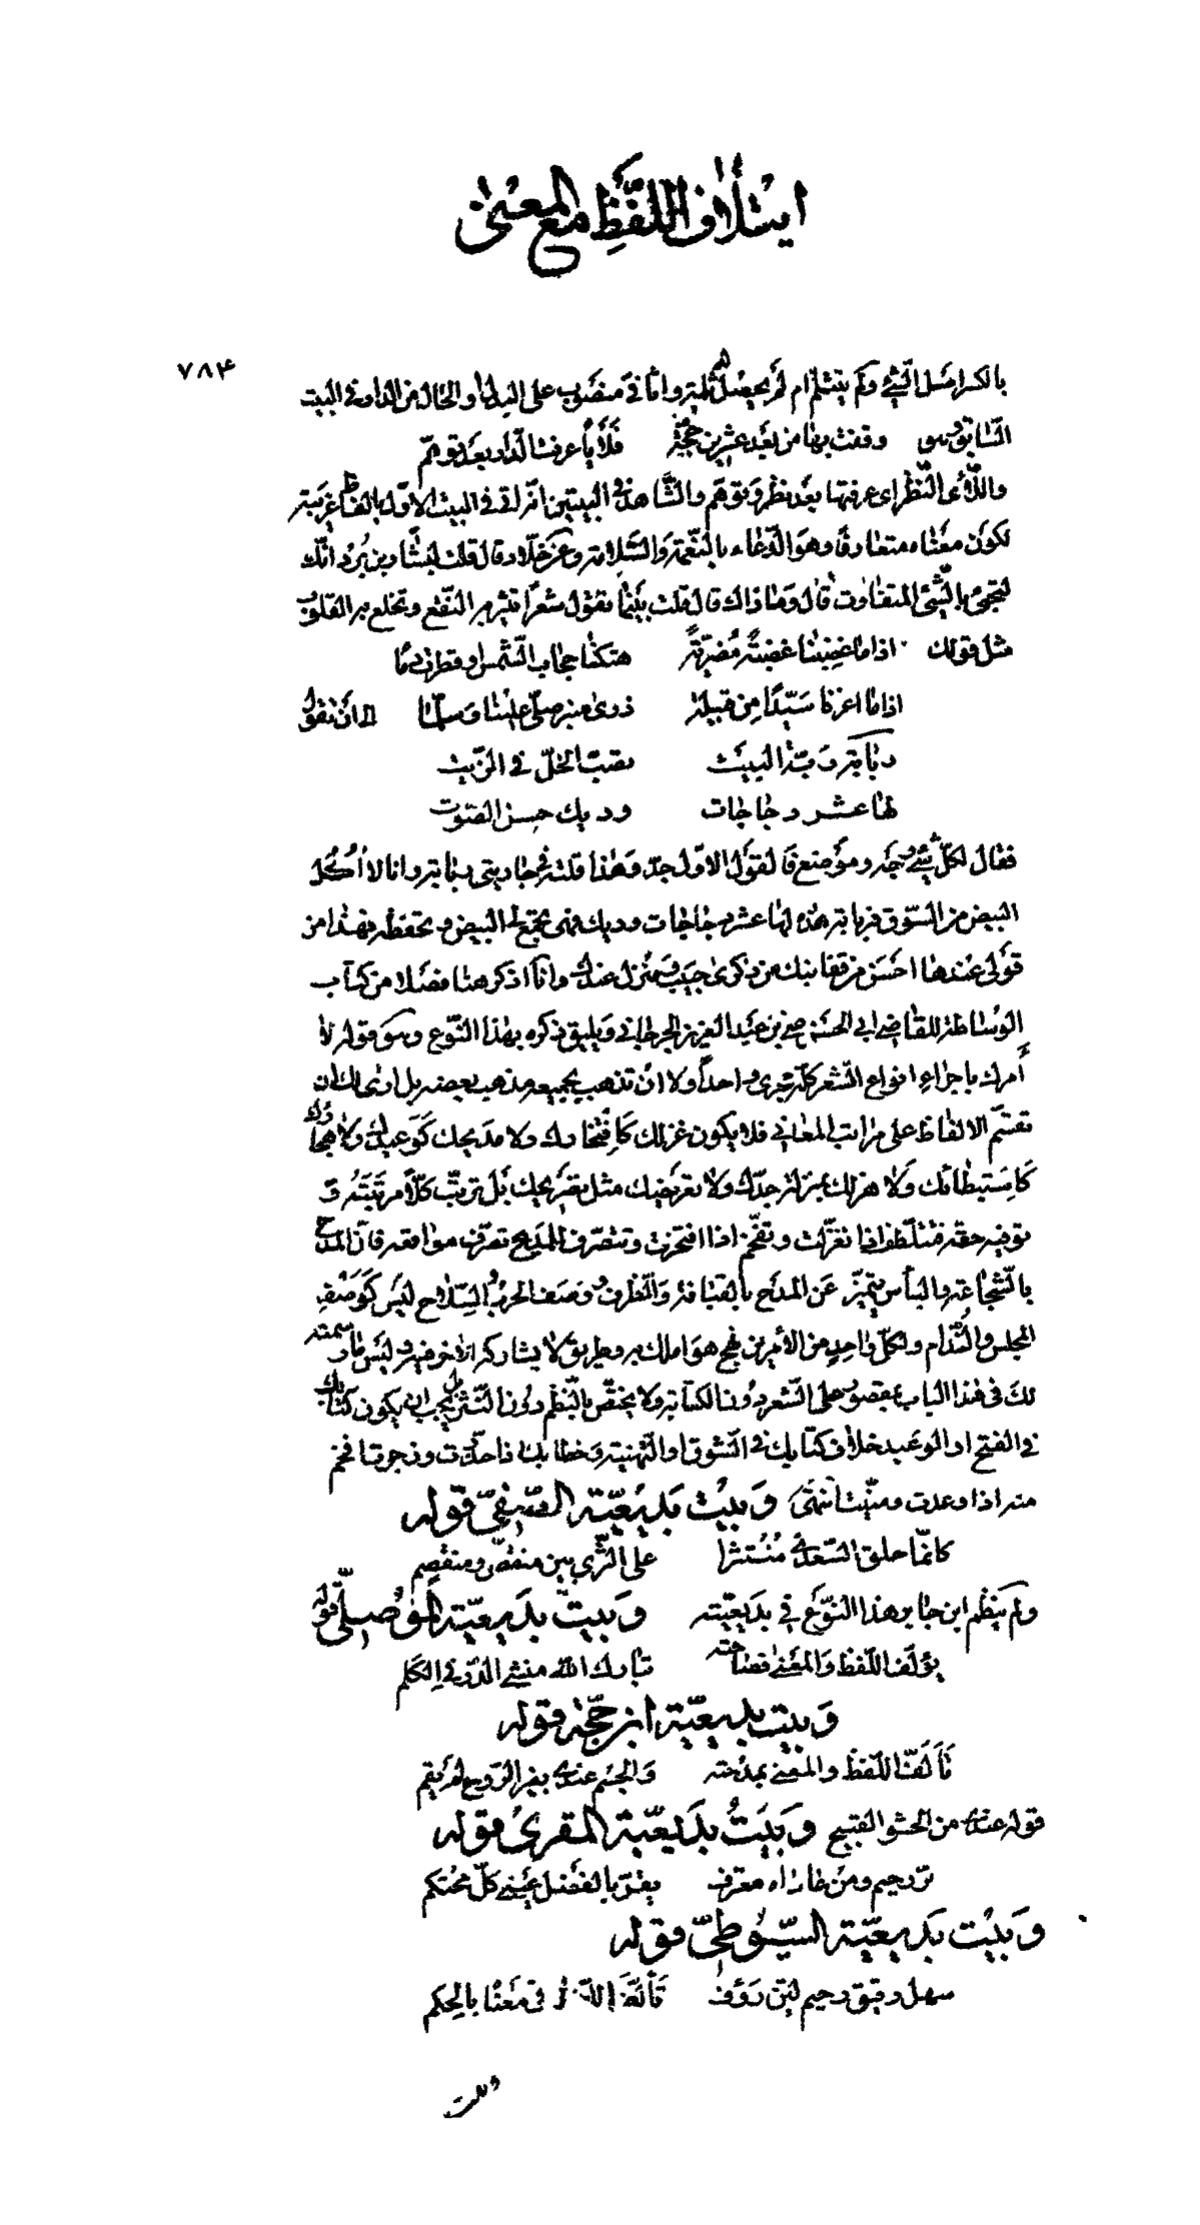 ايتلاف اللفظ مع المعنى
٧٨۴
بالكسر اصل الشئ ولم يتثلم ام لم يحصل فيه ثلم واثافى منصوب على البدل او الحال من الدار فى البيت
السابق وهو وقفت بها من بعد عشرين حجّة فلأيا عرفت الدار بعد توهّم
واللأى النظر اى عرفتها بعد نظر وتوهّم والشاهد فى البيتين انه اتى فى البيت الاول بالفاظ غريبة
لكون معناه متعارفا وهو الدعاء بالنعمة والسلامة وعن خلاد قال قلت لبشّار بن بُرد انّك
لتجئ بالشئ المتفاوت قال وما ذاك قال قلت بينما تقول شعرا تثير به النقع وتخلع به القلوب
مثل قولك اذا ما غضبنا غضبة مضريّة هتكنا حجاب الشمس او قطرت دما
اذا ما اعرنا سيّدا من قبيلة ذرى منبر صلّى علينا وسلّما الى ان تقول
ربابة ربّة البيت تصبّ الخلّ فى الزيت
لها عشر دجاجات وديك حسن الصوت
فقال لكلّ شئ وجه وموضع فالقول الاول جدّ وهذا قلته فى جاريتى ربابة وانا لا آكل
البيض من السوق فربابة هذه لها عشر دجاجات وديك فهى تجمع لى البيض وتحفظه فهذا من
قولى عندها احسن من قفا نبك من ذكرى حبيب ومنزل عندك وانا اذكر هنا فصلا من كتاب
الوساطة للقاضى ابى الحسن على بن عبد العزيز الجرجانى ويليق ذكره بهذا النوع وهو قوله لا
أمرك باجراء انواع الشعر كلّه مجرى واحدا ولا ان تذهب بجميعه مذهب بعضه بل ارى لك ان
تقسّم الالفاظ على مراتب المعانى فلا يكون غزلك كافتخارك ولا مديحك كوعيدك ولا هجاؤك
كاستبطائك ولا هزلك بمنزلة جدّك ولا تعريضك مثل تصريحك بل ترتّب كلّا مرتبته و
توفيه حقه فتتلطّف اذا تغزّلت وتفخّم اذا افتخرت وتتصرّف للمديح تصرّف مواقعه فانّ المدح
بالشجاعة والبأس يتميّز عن المدح باللباقة والظرف ووصف الحرب والسلاح ليس كوصف
المجلس والمُدام ولكلّ واحد من الامرين نهج هو املك به وطريق لا يشاركه الاخر فيه وليس ما رسمته
لك فى هذا الباب بمقصور على الشعر دون الكتابة ولا يختصّ بالنظم دون النثر بل يجب ان يكون كتابك
فى الفتح او الوعيد خلاف كتابك فى التشوق او التهنية وخطابك اذا حذّرت وزجرت افخم
منه اذا وعدت ومنّيت انتهى وبيت بديعيّة الصفىّ قوله
كانّما حلق السعدىّ منتثرا على الثرى بين منفضّ ومنفصم
ولم ينظم ابن جابر هذا النوع فى بديعيّته وبيت بديعيّة الموصلىّ قوله
يؤلّف اللفظ والمعنى فصاحته تبارك الله منشى الدرّ فى الكلم
وبيت بديعيّة ابن حجّة قوله
تألّف اللفظ والمعنى بمدحته والجسم عندى بغير الروح لم يقم
قوله عندى من الحشو القبيح وبيت بديعيّة المقرئ قوله
برّ رحيم ومن عاداه معترف يقرّ بالفضل عنه كلّ محتكم
وبيت بديعيّة السيوطىّ قوله
سهل رقيق رحيم ليّن رؤف تألّف اللفظ فى معناه بالحكم
وبيت